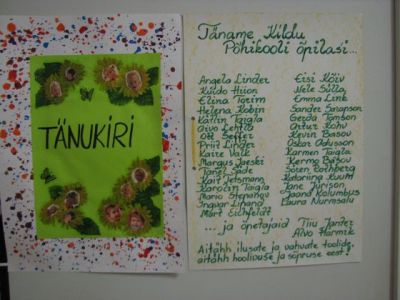 TÄNUKIRI
Täname Kildu
Põhikooli õpilasi...
Angela Linder
Küldo Hiion
Elina Torim
Helena Robin
Kätlin Taigla
Oivo Lehtla
Ott Seiler
Priit Linder
Kaire Valk
Margus Jaeski
Janel Säde
Kait Tetsmann
Karolin Taigla
Mario Stepanov
Ingvar Lihand
Märt Eichfeldt
Eisi Kõiv
Nele Sülla
Emma Link
Sander Sarapson
Gerda Tomson
Artur Rohv
Kevin Babov
Oskar Odysson
Karmen Taigla
Kermo Babov
Sören Rothberg
Katarina Ruum
Jane Jürison
Jaana Kolumbus
Laura Nurmsalu
... ja õpetajaid Tiiu Janter
Aivo Harmik
Aitähh ilusate ja vahvate toolide,
aitähh hoolivuse ja sõpruse eest!